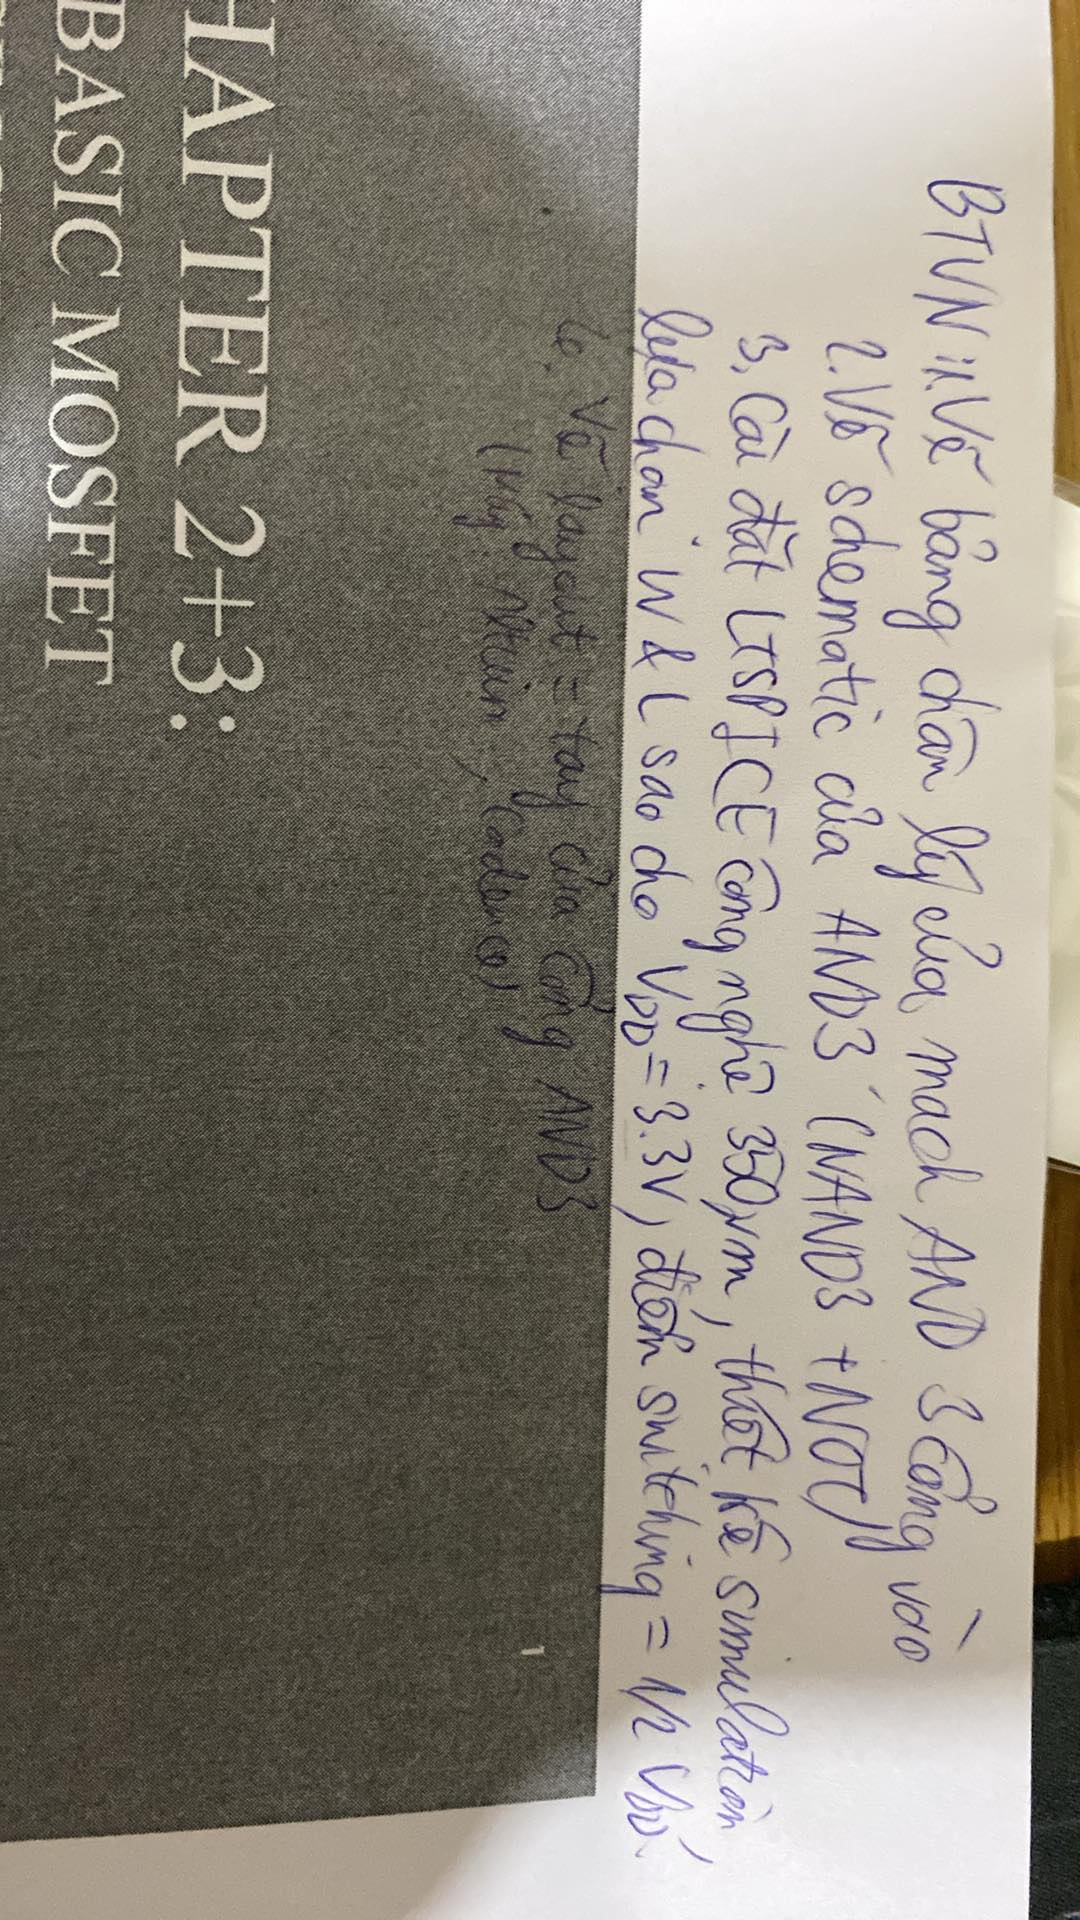 BTVN: 1. Vẽ bảng chân lý của mạch AND 3 cổng vào
2. Vẽ schematic của AND3 (NAND3 + NOT)
3. Cài đặt LTSPICE công nghệ 350µm, thiết kế simulation
lựa chọn W & L sao cho VDD = 3.3V, điểm switching = 1/2 VDD.
4. Vẽ layout = tay của cổng AND3
HAPTER 2+3:
BASIC MOSFET
1